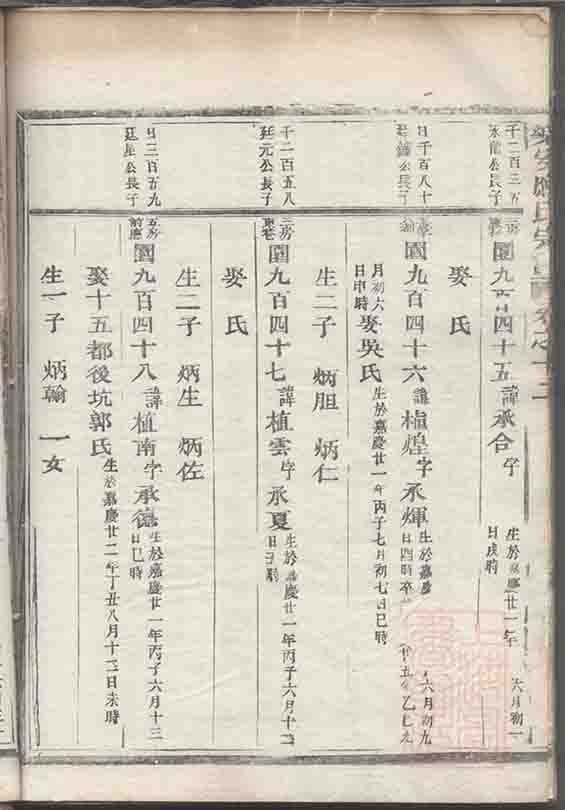 千二百三五
永龍公長子
國九百四十五諱承合字
生於嘉慶廿一年
六月初一
日戌時
娶氏
日千百八十
公長子
國九百四十六諱植煌字承煇
生於嘉慶
六月初九
日四時卒
十五年乙
月初六
日申時
娶吳氏
生於嘉慶廿一年丙子七月初七日巳時
生二子 炳胆 炳仁
千二百五八
廷元公長子
三房
國九百四十七諱植雲字承夏
生於嘉慶廿一年丙子六月十二
日子時
娶氏
生二子 炳生 炳佐
日三百五九
廷星公長子
五房
前應
國九百四十八諱植南字承德
生於嘉慶廿一年丙子六月十三
日巳時
娶十五都後坑郭氏
生於嘉慶廿二年丁丑八月十二日未時
生一子 炳翰 一女